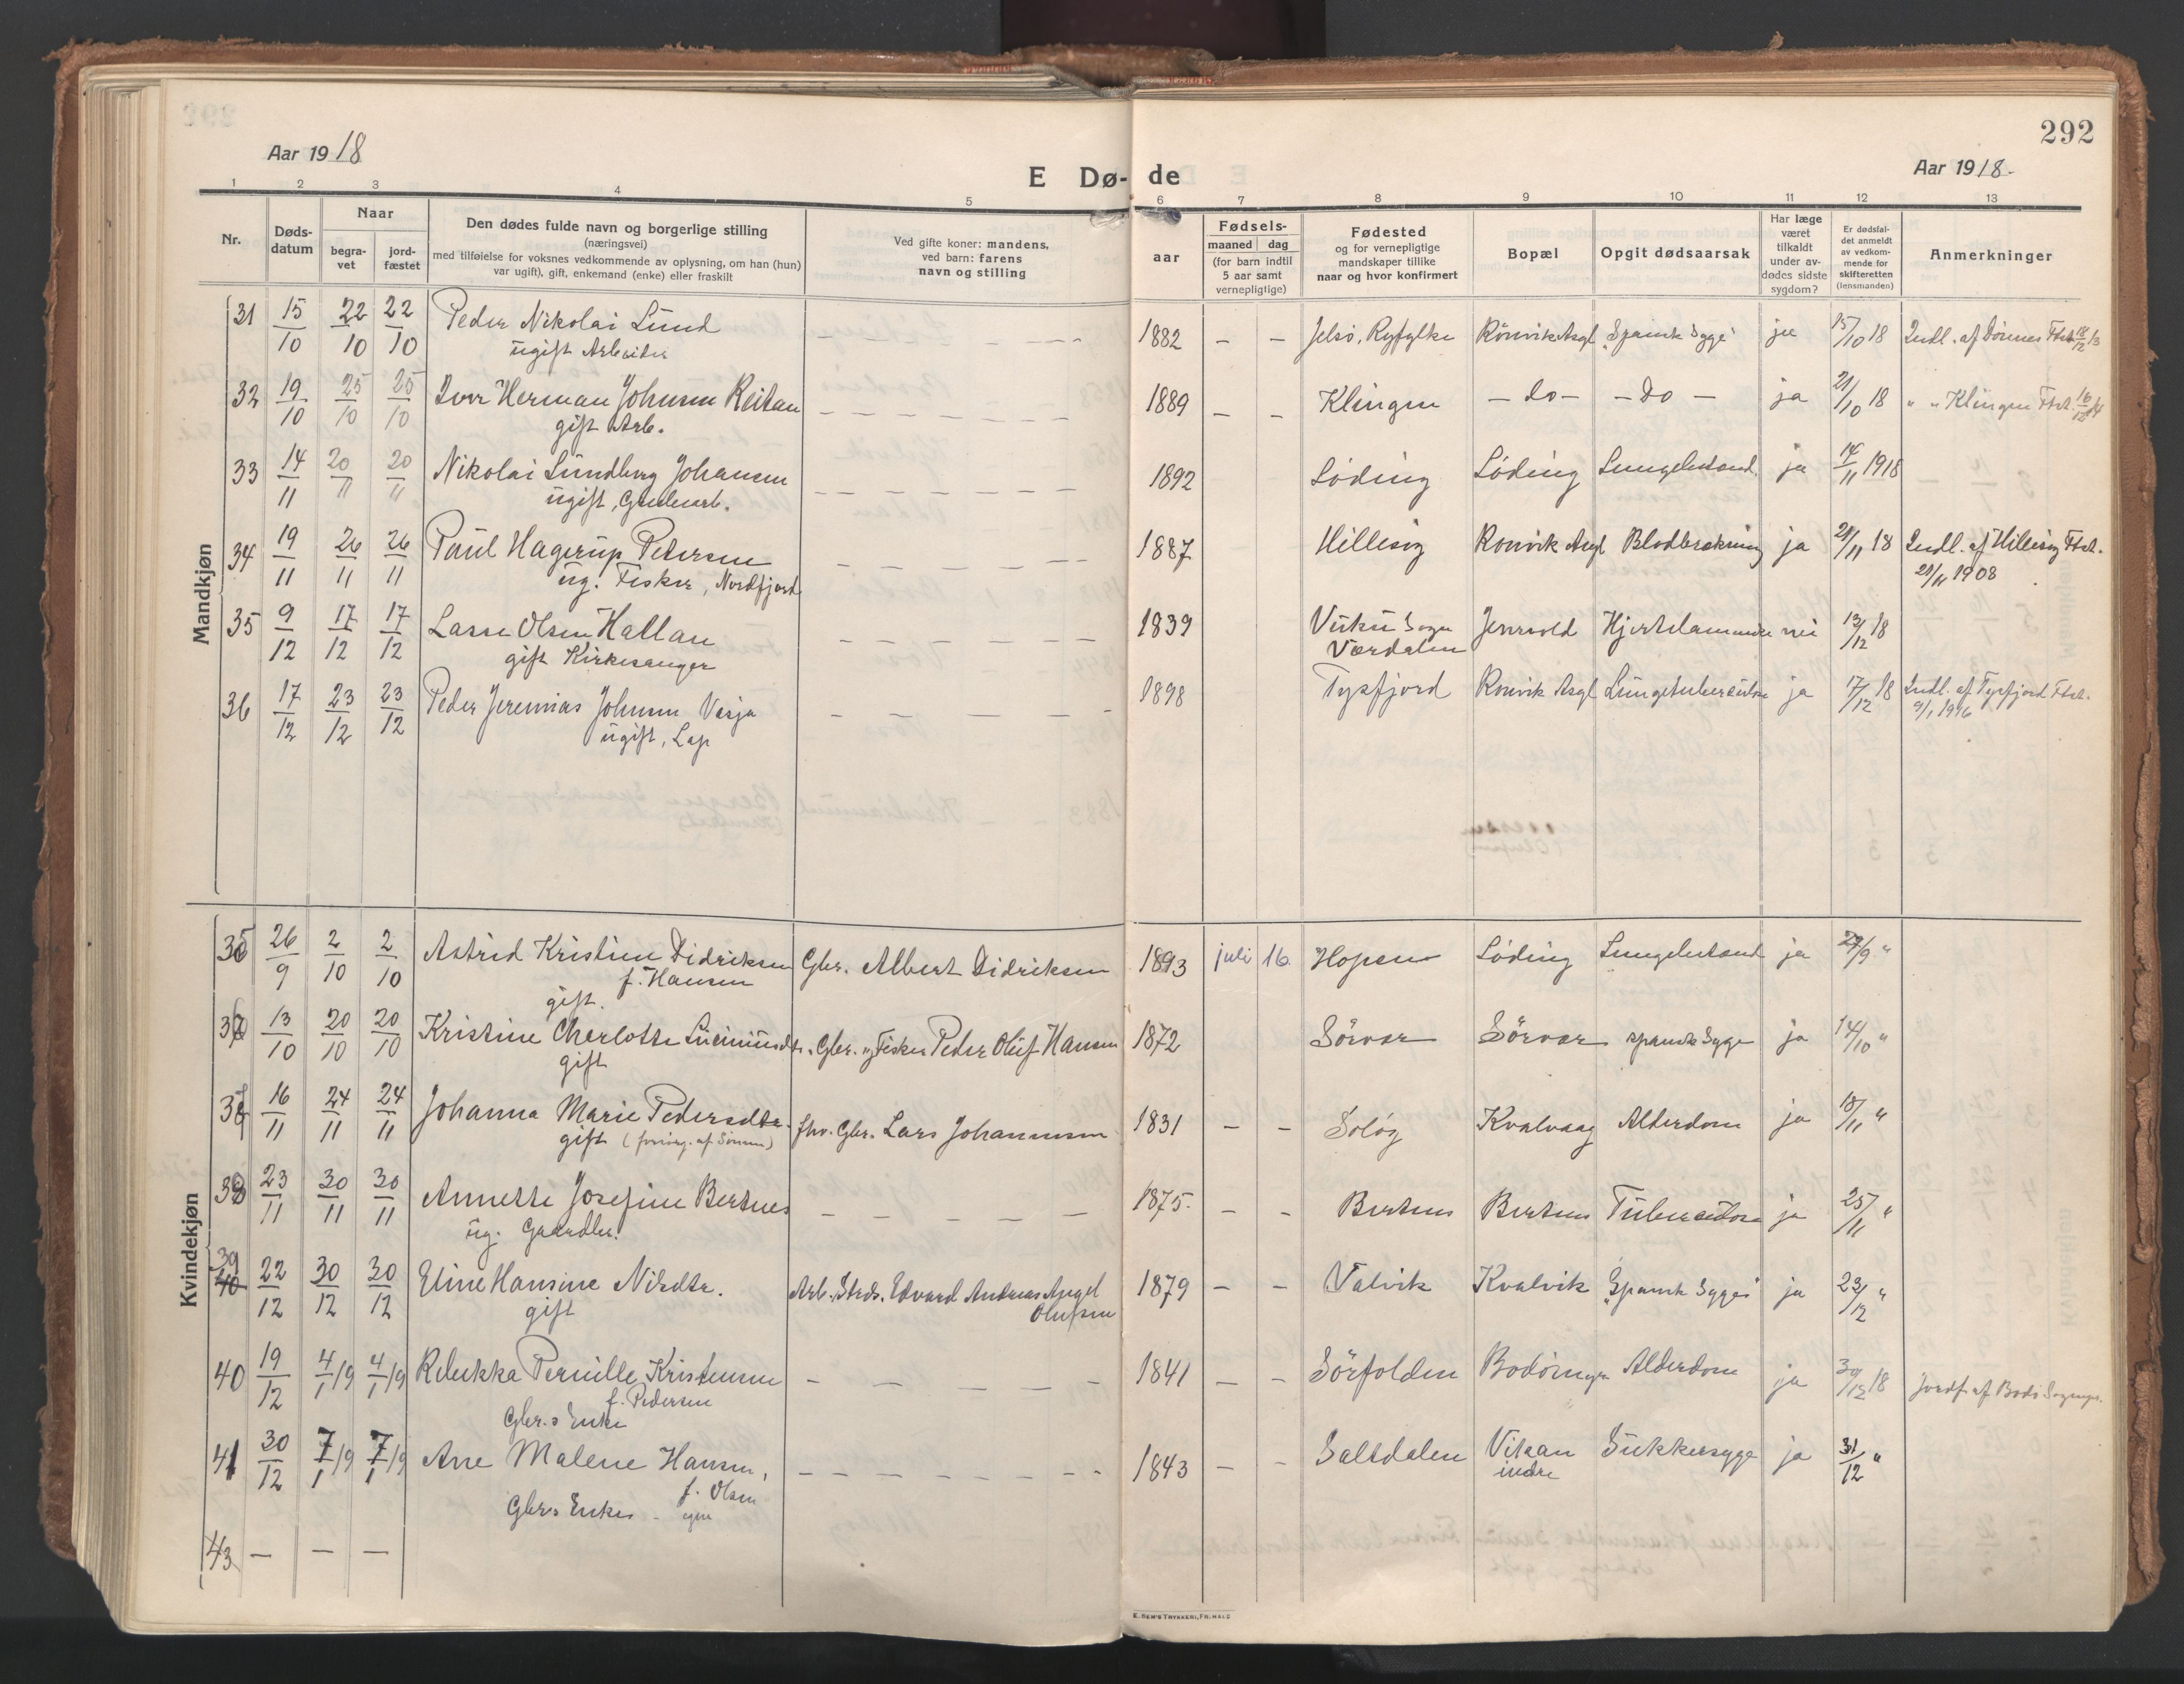 292
Aar 1918
Aar 1918.
E Dø- de
1 2 3 4 5 6 7 8 9 10 11 12 13
Nr.
Døds-
datum
Naar
begra-
vet
jord-
fæstet
Den dødes fulde navn og borgerlige stilling
(næringsvei)
med tilføielse for voksnes vedkommende av oplysning, om han (hun)
var ugift), gift, enkemand (enke) eller fraskilt
Ved gifte koner: mandens,
ved barn: farens
navn og stilling
Fødsels-
aar
maaned dag
(for barn indtil
5 aar samt
vernepligtige)
Fødested
og for vernepligtige
mandskaper tillike
naar og hvor konfirmert
Bopæl
Opgit dødsaarsak
Har læge
været
tilkaldt
under av-
dødes sidste
sygdom?
Er dødsfal-
det anmeldt
av vedkom-
mende for
skifteretten
(lensmanden)
Anmerkninger
Mandkjøn
31 15/10 22/10 22/10 Peder Nikolai Lund — — — 1882 — — Jelsø, Ryfylke Rönvik Asyl „Spansk Syge" ja 15/10 18 Indl. af Dönnes Fhst.
ugift Arbeider
32 19/10 25/10 25/10 Iver Herman Johnsen Reitan — — — 1889 — — Klingen — do — — Do — ja 21/10 18 " " Klingen Fhst.
gift Arb.
33 14/11 20/11 20/11 Nikolai Lundberg Johansen — — — 1892 Löding Löding Lungebetænd. ja 14/11 1918
ugift, Grubearb.
34 19/11 26/11 26/11 Paul Hagerup Petersen — — — 1887 Hillesøy Rönvik Asyl Blodbrækning ja 21/11 18 Indl. af Hillesøy Fhst.
ug. Fisker, Nordfjord
21/11 1908
35 9/12 17/12 17/12 Lasse Olsen Hallan — — — 1839 Vuku Sogn Jensvold Hjertelammelse nei 13/12 18
gift Kirkesanger
Værdalen
36 17/12 23/12 23/12 Peder Jeremias Johnsen Vasja — — — 1898 Tysfjord Rönvik Asyl Lungetuberculose ja 17/12 18 Indl. af Tysfjord Fhst.
ugift, Lap
9/1 1916
Kvindekjøn
35 26/9 2/10 2/10 Astrid Kristine Didriksen Gbr. Albert Didriksen 1893 juli 16 Hopen Löding Lungebetænd ja 27/9 "
f. Hansen
gift.
36 13/10 20/10 20/10 Kristine Charlotte Gbr. og Fisker Peder Oluf Hansen 1872 Sörvær Sörvær spansk Syge ja 14/10 "
gift
37 16/11 24/11 24/11 Johanna Marie Pedersdtr. fhv. Gbr. Lars Johannesen 1831 — — Soløy Kvalvaag Alderdom ja 18/11 "
gift (forsörg. af Sönnen)
38 23/11 30/11 30/11 Annette Josefine Bertnes — — — 1875. — — Bertnes Bertnes Tuberculose ja 25/11 "
ug. Gaardbr.
39 40 22/12 30/12 30/12 Eline Hansine Nilsdtr. Arb. Stads. Edvard Andreas Angel 1879 — — Valvik Kvalvik „Spansk Syge" ja 23/12 "
gift
Olufsen
40 19/12 4/1 19 4/1 19 Rebekka Pernille Kristensen — — — 1841 — — Sörfolden Bodöinger Alderdom ja 30/12 18 Jordf. af Bodö Sognepr.
f. Pedersen
Gbr.s Enke
41 30/12 7/1 19 7/1 19 Ane Malene Hansen, — — — 1843 — — Saltdalen Vikan Sukkersyge ja 31/12 "
indre
f. Olsen
Gbrs Enke
43 — — —
E. SEM'S TRYKKERI, FR.HALD